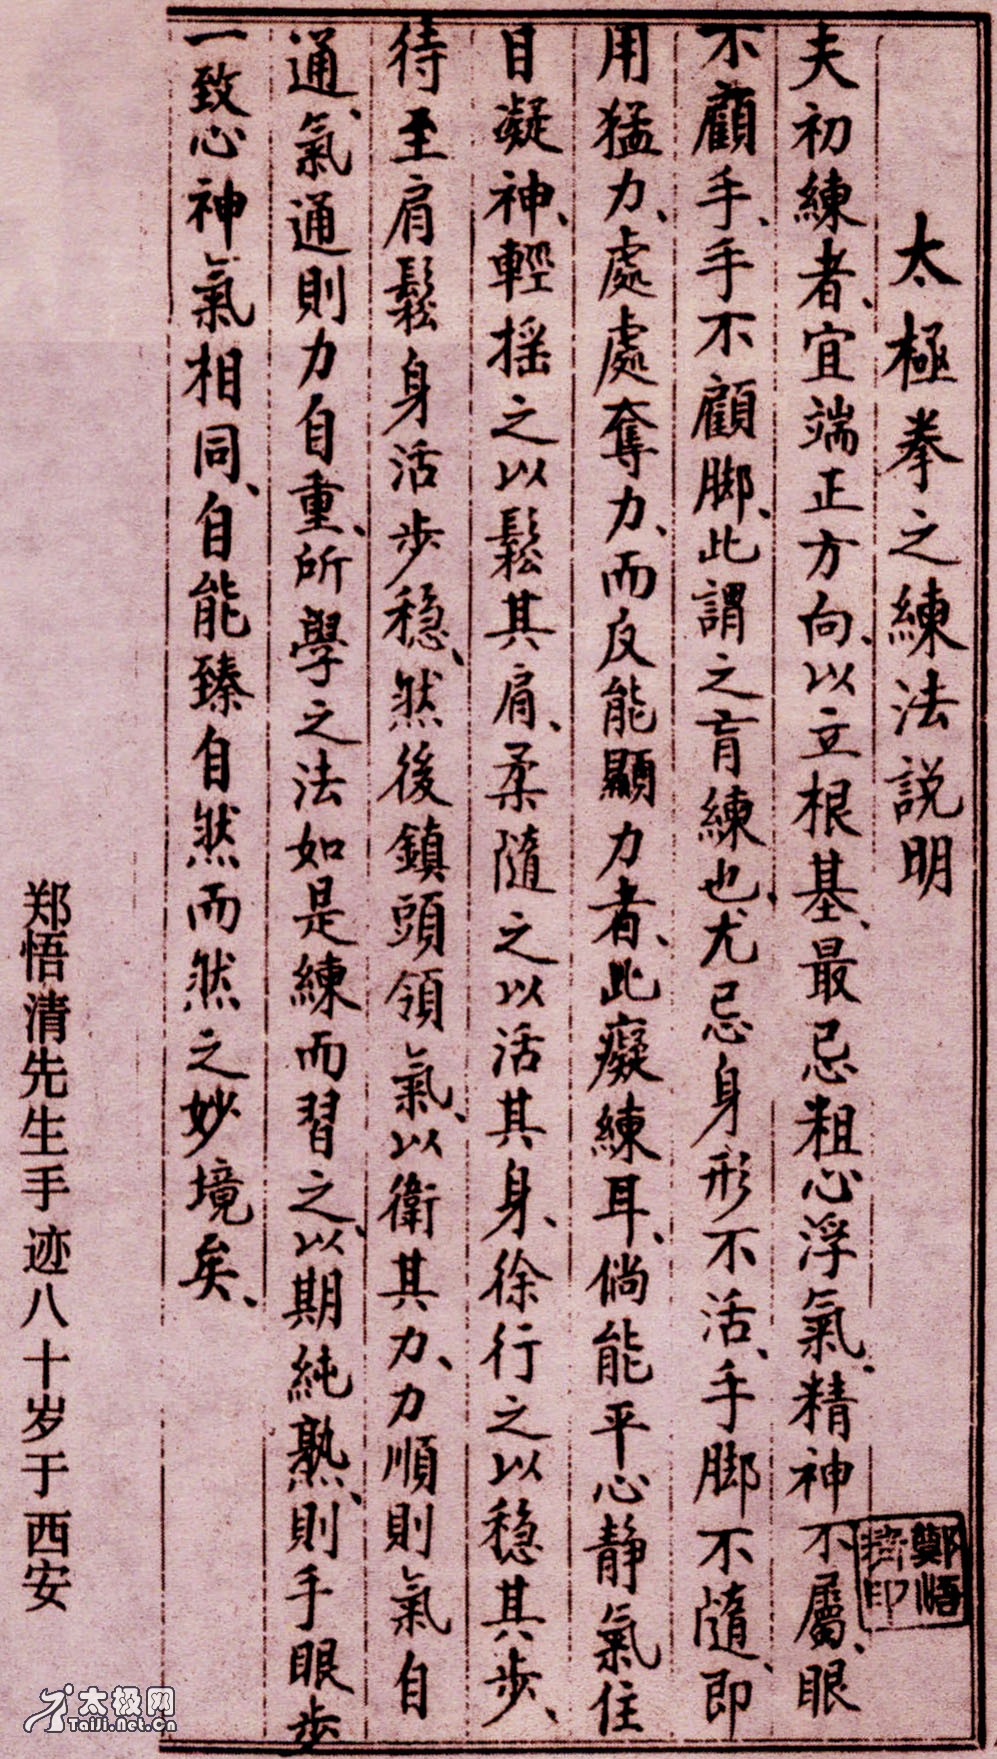 太極拳之練法説明
夫初練者、宜端正方向、以立根基、最忌粗心浮氣、精神不屬、眼
不顧手、手不顧脚、此謂之盲練也、尤忌身形不活、手脚不隨、即
用猛力、處處奪力、而反能顯力者、此癡練耳、倘能平心静氣住
目凝神、輕摇之以鬆其肩、柔隨之以活其身、徐行之以穏其步、
待至肩鬆身活步穏、然後鎮頭領氣、以衛其力、力順則氣自
通、氣通則力自重、所學之法如是練而習之、以期純熟、則手眼步
一致心神氣相同、自能臻自然而然之妙境矣、
鄭悟清印
郑悟清先生手迹八十岁于西安
太极网
TaiJi.Net.Cn